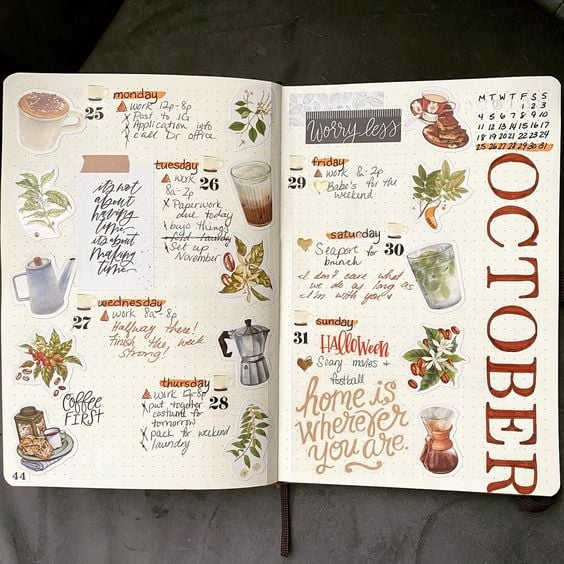 monday
25
work 12p-8p
Post to IG
Application into
call Dr office
tuesday
26
work
8a-2p
Paperwork
due today
bujo things
fold laundry
Set up
November
it's not
about
having
time
it's about
making
time
wednesday
27
work 8a-8p
Halfway there!
Finish the week
strong!
COFFEE
FIRST
thursday
28
work
put together
costume for
tomorrow
pack for weekend
laundry
44
Worry less
M T W T F S S
1 2 3
4 5 6 7 8 9 10
11 12 13 14 15 16 17
18 19 20 21 22 23 24
25 26 27 28 29 30 31
OCTOBER
friday
29
work 8a-2p
Babe's for the
weekend
saturday
30
Seaport for
brunch
I don't care what
we do as long as
I'm with you
sunday
31
HALLOWEEN
Scary movies +
football
home is
wherever
you are.